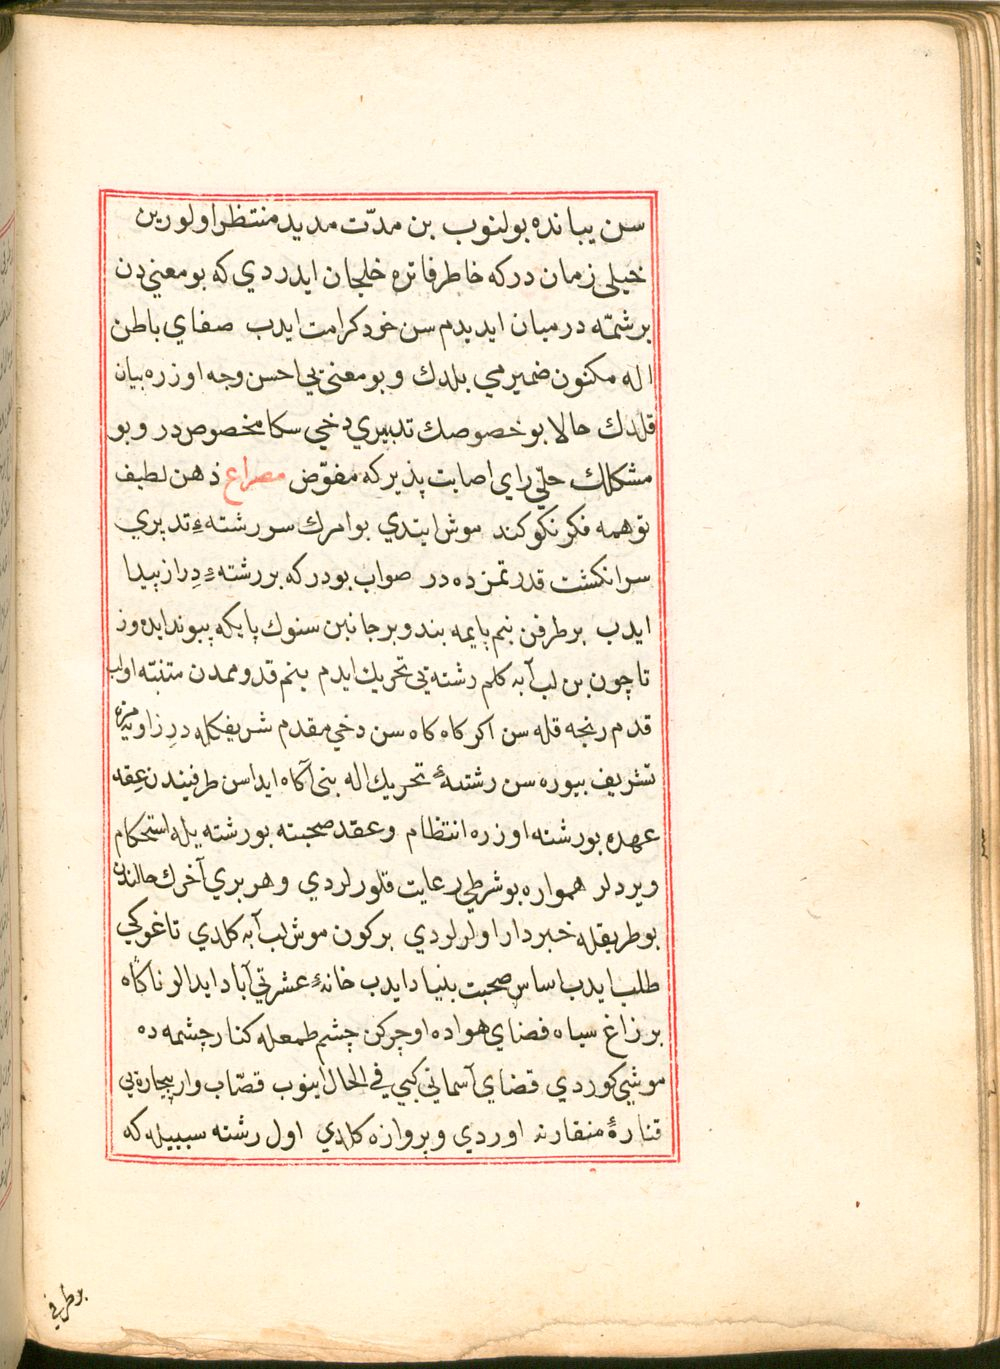 سن يبانده بولنوب بن مدّت مديد منتظر اولورين
خيلي زمان دركه خاطر فاتره خلجان ايدردي كه بو معني دن
بر شمّه در ميان ايديدم سن خود كرامت ايدب صفاي باطن
اله مكنون ضميرمي بلدك و بو معني يي احسن وجه اوزره بيان
قلدك حالا بو خصوصك تدبيري دخي سكا مخصوص در و بو
مشكلك حلّي راي اصابت پذيركه مفوّض مصراع ذهن لطيف
تو همه فكر نكو كند موش ايتدي بو امرك سر رشته ء تدبيري
سر انكشت قدرتمزده در صواب بودر كه بر رشته ء دراز پيدا
ايدب بر طرفن بنم پايمه بند و بر جانبن سنوك پايكه پيوند ايده وز
تا چون بن لب آبه كلم رشته يي تحريك ايدم بنم قدوممدن متنبّه اولب
قدم رنجه قله سن اكر كاه كاه سن دخي مقدم شريفكله در زاويه مزه
تشريف بيوره سن رشتهٔ تحريك اله بني آكاه ايداسن طرفيندن عقد
عهده بو رشته اوزره انتظام و عقد صحبته بو رشته يله استحكام
ويردلر همواره بو شرطي رعايت قلورلردي و هر بري آخرك حالندن
بو طريقله خبردار اولرلردي بر كون موش لب آبه كلدي تا غوكي
طلب ايدب اساس صحبت بنياد ايدب خانهٔ عشرتي آباد ايدا لو ناكاه
بر زاغ سياه فضاي هواده اوچركن چشم طمعله كنار چشمه ده
موشي كوردي قضاي آسماني كبي في الحال اينوب قصّاب وار بيچاره يي
قنارهٔ منقارنه اوردي و پروازه كلدي اول رشته سببيله كه
بر طرفي